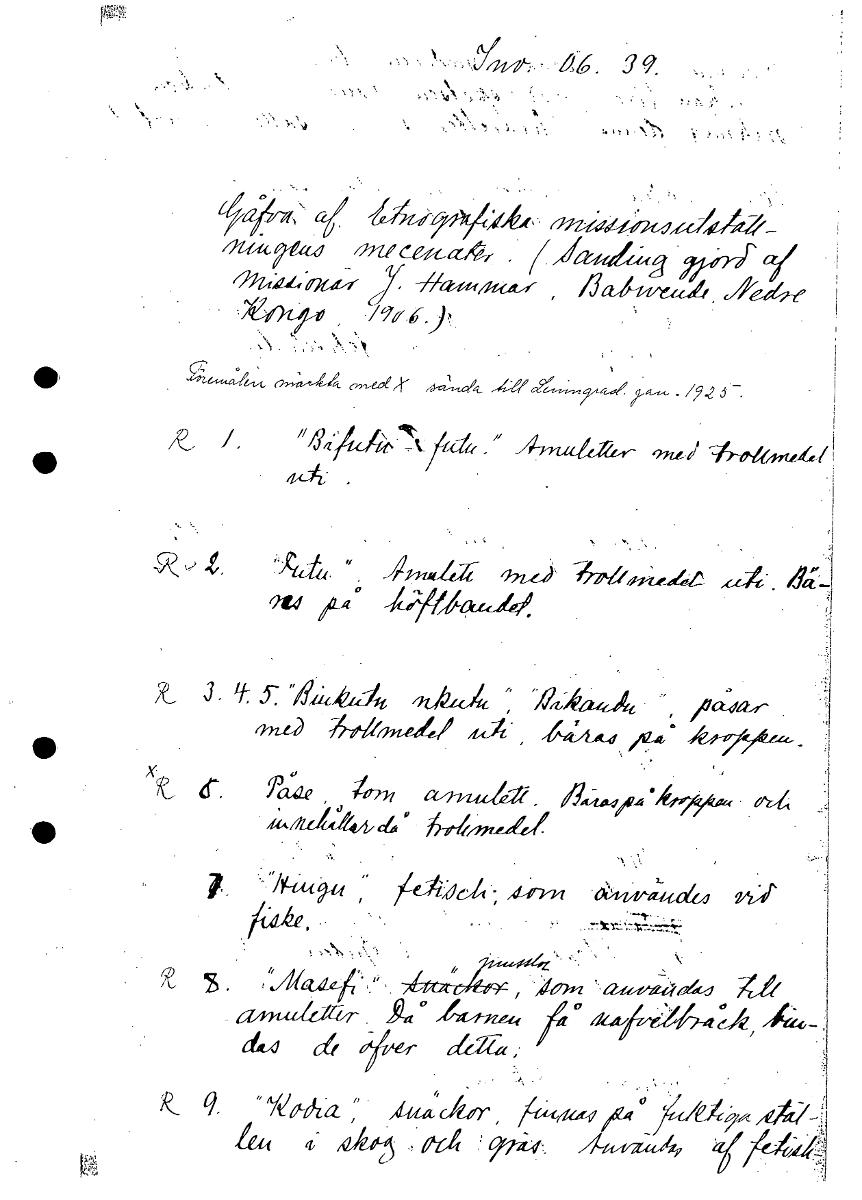 Inv. 06. 39.
Gåfva af Etnografiska missionsutställ-
ningens mecenater. (Samling gjord af
missionär J. Hammar, Babwende, Nedre
Kongo 1906.)
Föremålen märkta med X sända till Leningrad jan. 1925.
R 1. "Bifutu futu." Amuletter med trollmedel
uti.
R 2. "Futu". Amulett med trollmedel uti. Bä-
res på höftbandet.
R 3. 4. 5. "Binkutu nkutu", "Bikandu", påsar
med trollmedel uti, bäras på kroppen.
X R 6. Påse, tom amulett. Bäres på kroppen och
innehåller då trollmedel.
7. "Hingu", fetisch, som användes vid
fiske.
R 8. "Masefi" snäckor, musslor som användas till
amuletter. Då barnen få nafvelbråck, bin-
das de öfver detta.
R 9. "Kodia", snäckor, finnas på fuktiga stäl-
len i skog och gräs. Användas af fetisch-